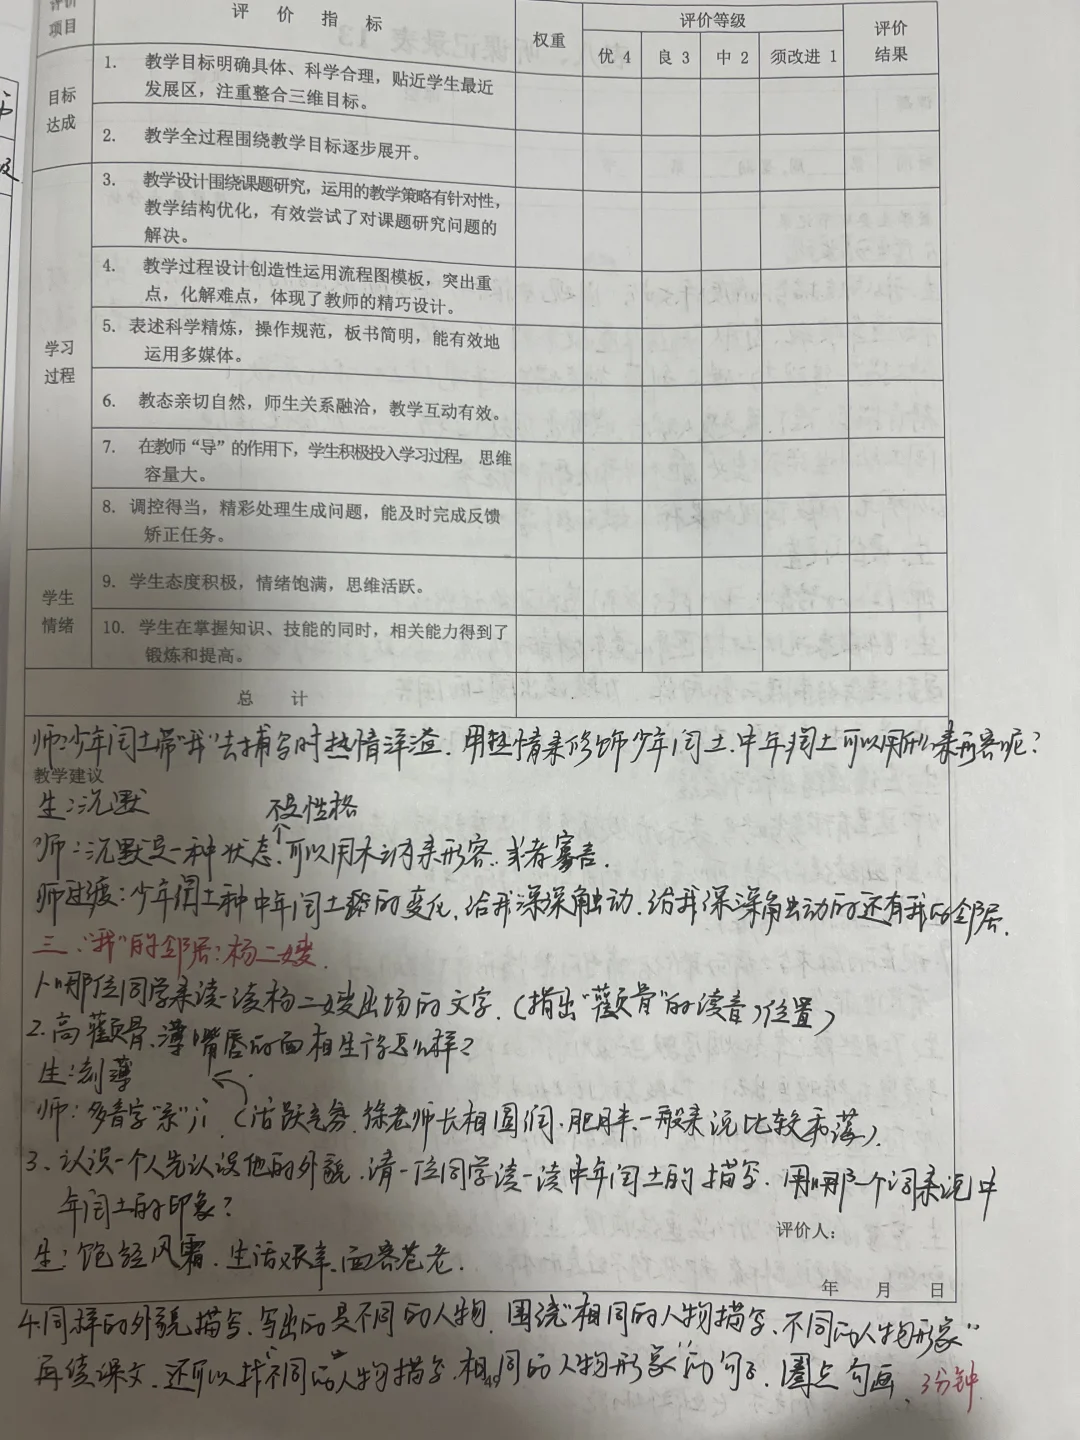 评价项目 评价指标 权重 评价等级 评价结果
优 4 良 3 中 2 须改进 1
目标达成
1. 教学目标明确具体、科学合理，贴近学生最近
发展区，注重整合三维目标。
2. 教学全过程围绕教学目标逐步展开。
学习过程
3. 教学设计围绕课题研究，运用的教学策略有针对性，
教学结构优化，有效尝试了对课题研究问题的
解决。
4. 教学过程设计创造性运用流程图模板，突出重
点，化解难点，体现了教师的精巧设计。
5. 表述科学精炼，操作规范，板书简明，能有效地
运用多媒体。
6. 教态亲切自然，师生关系融洽，教学互动有效。
7. 在教师“导”的作用下，学生积极投入学习过程，思维
容量大。
8. 调控得当，精彩处理生成问题，能及时完成反馈
矫正任务。
学生情绪
9. 学生态度积极，情绪饱满，思维活跃。
10. 学生在掌握知识、技能的同时，相关能力得到了
锻炼和提高。
总 计
师：少年闰土带“我”去捕鸟时热情洋溢，用热情来修饰少年闰土，中年闰土可以用什么来形容呢？
教学建议
生：沉默
不是性格
师：沉默是一种状态，可以用木讷来形容，或者寡言．
师过渡：少年闰土和中年闰土的变化，给我深深触动，给我深深触动的还有我的邻居．
三、“我”的邻居：杨二嫂．
1、哪位同学来读一读杨二嫂出场的文字．（指出“颧骨”的读音，位置）
2. 高颧骨、薄嘴唇的面相生字怎么样？
生：刻薄
师：多音字 （活跃气氛，徐老师长相圆润，肥胖，一般来说比较和蔼）．
3、认识一个人先认识他的外貌，请一位同学读一读中年闰土的描写，用哪一个词来说中
年闰土的印象？
评价人：
生：饱经风霜．生活艰辛，面容苍老．
年 月 日
4.同样的外貌描写，写出的是不同的人物，围绕“相同的人物描写，不同的人物形象”
再读课文，还可以找“不同的人物描写，相同的人物形象”的句子，圈点勾画，3分钟．